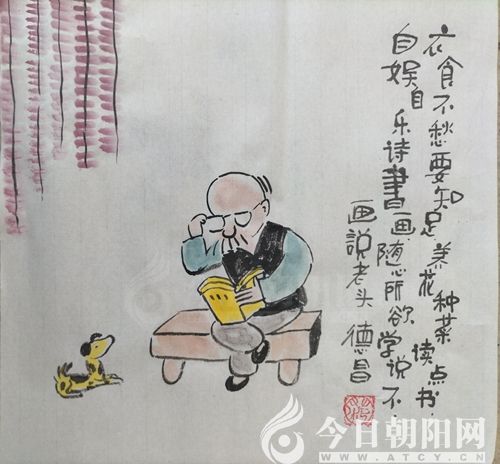 衣食不愁要知足养花种菜读点书
自娱自乐诗書画随心所欲学说不
画说老头 德昌
今日朝阳网
WWW.ATCY.CN